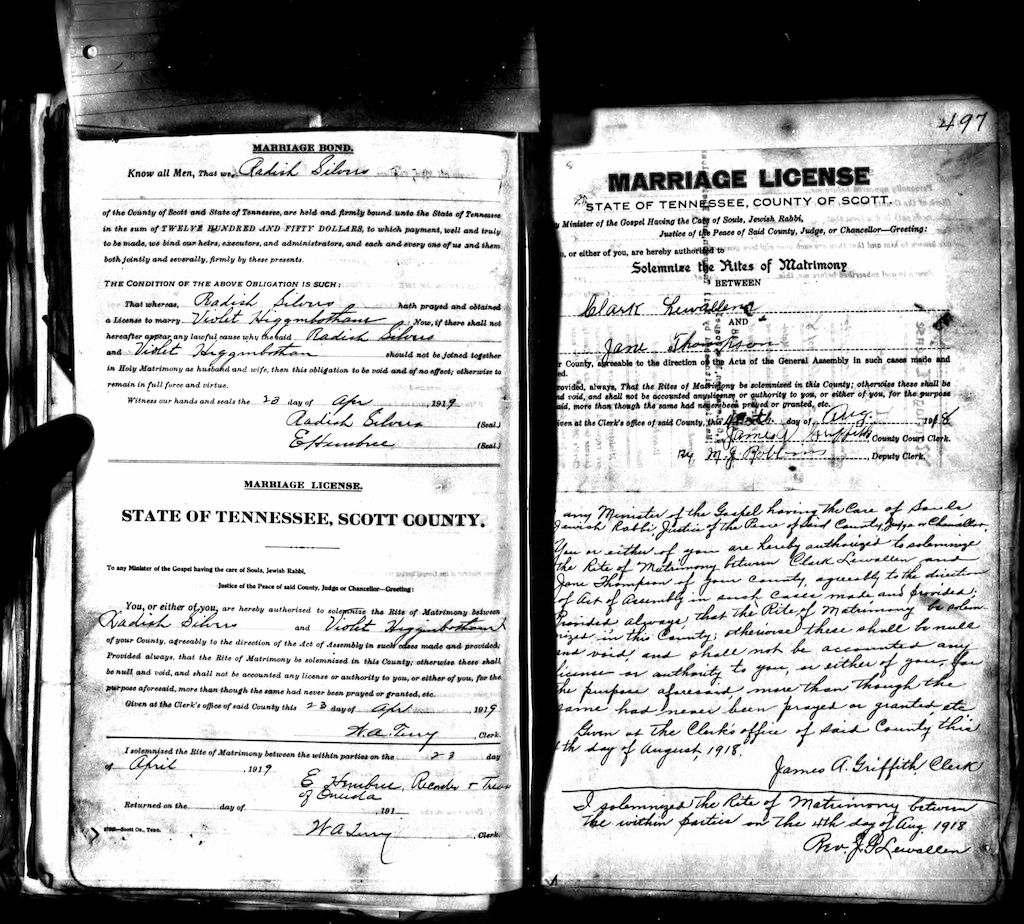 MARRIAGE BOND.
Know all Men, That we, Radish Silvers
of the County of Scott and State of Tennessee, are held and firmly bound unto the State of Tennessee
in the sum of TWELVE HUNDRED AND FIFTY DOLLARS, to which payment, well and truly
to be made, we bind our heirs, executors, and administrators, and each and every one of us and them
both jointly and severally, firmly by these presents.
THE CONDITION OF THE ABOVE OBLIGATION IS SUCH:
That whereas, Radish Silvers hath prayed and obtained
a License to marry Violet Higgmbotham Now, if there shall not
hereafter appear any lawful cause why the said Radish Silvers
and Violet Higgmbothan should not be joined together
in Holy Matrimony as husband and wife, then this obligation to be void and of no effect; otherwise to
remain in full force and virtue.
Witness our hands and seals the 23 day of Apr 1919
Radish Silvers (Seal.)
E Hembree (Seal.)
MARRIAGE LICENSE.
STATE OF TENNESSEE, SCOTT COUNTY.
To any Minister of the Gospel having the care of Souls, Jewish Rabbi,
Justice of the Peace of said County, Judge or Chancellor—Greeting:
You, or either of you, are hereby authorized to solemnize the Rite of Matrimony between
Radish Silvers and Violet Higgmbotham
of your County, agreeably to the direction of the Act of Assembly in such cases made and provided;
Provided always, that the Rite of Matrimony be solemnized in this County; otherwise these shall
be null and void, and shall not be accounted any license or authority to you, or either of you, for the
purpose aforesaid, more than though the same had never been prayed or granted, etc.
Given at the Clerk's office of said County this 23 day of Apr 1919
W.A. Terry, Clerk.
I solemnized the Rite of Matrimony between the within parties on the 23 day
of April, 1919
E Hembree, Recorder + Treas
of Oneida
Returned on the day of 191
W A Terry Clerk.
Scott Co., Tenn.
497
MARRIAGE LICENSE
STATE OF TENNESSEE, COUNTY OF SCOTT.
Minister of the Gospel Having the Care of Souls, Jewish Rabbi,
Justice of the Peace of Said County, Judge, or Chancellor—Greeting:
u, or either of you, are hereby authorized to
Solemnize the Rites of Matrimony
BETWEEN
Clark Lewallen
AND
Jane Thompson
r County, agreeable to the direction of the Acts of the General Assembly in such cases made and
ed.
rovided, always, That the Rites of Matrimony be solemnized in this County; otherwise these shall be
nd void, and shall not be accounted any license or authority to you, or either of you, for the purpose
aid, more than though the same had never been prayed or granted, etc.
iven at the Clerk's office of said County, this day of Aug. 1918
James A Griffith County Court Clerk.
By M. J. Robbins, Deputy Clerk.
any Minister of the Gospel having the Care of Souls
Jewish Rabbi, Justice of the Peace of Said County, Judge or Chancellor.
You or either of you are hereby authorized to solemnize
the Rite of Matrimony between Clark Lewallen and
Jane Thompson of your County, agreeably to the direction
of Act of Assembly in such cases made and provided;
Provided always, that the Rite of Matrimony be solem
nized in this County; otherwise these shall be null
and void, and shall not be accounted any
license or authority to you, or either of you, for
the purpose aforesaid, more than though the
same had never been prayed or granted etc
Given at the Clerk's office of said County this
4th day of August, 1918.
James A. Griffith, Clerk
I solemnized the Rite of Matrimony between
the within parties on the 4th day of Aug 1918
Rev. J. G. Lewallen